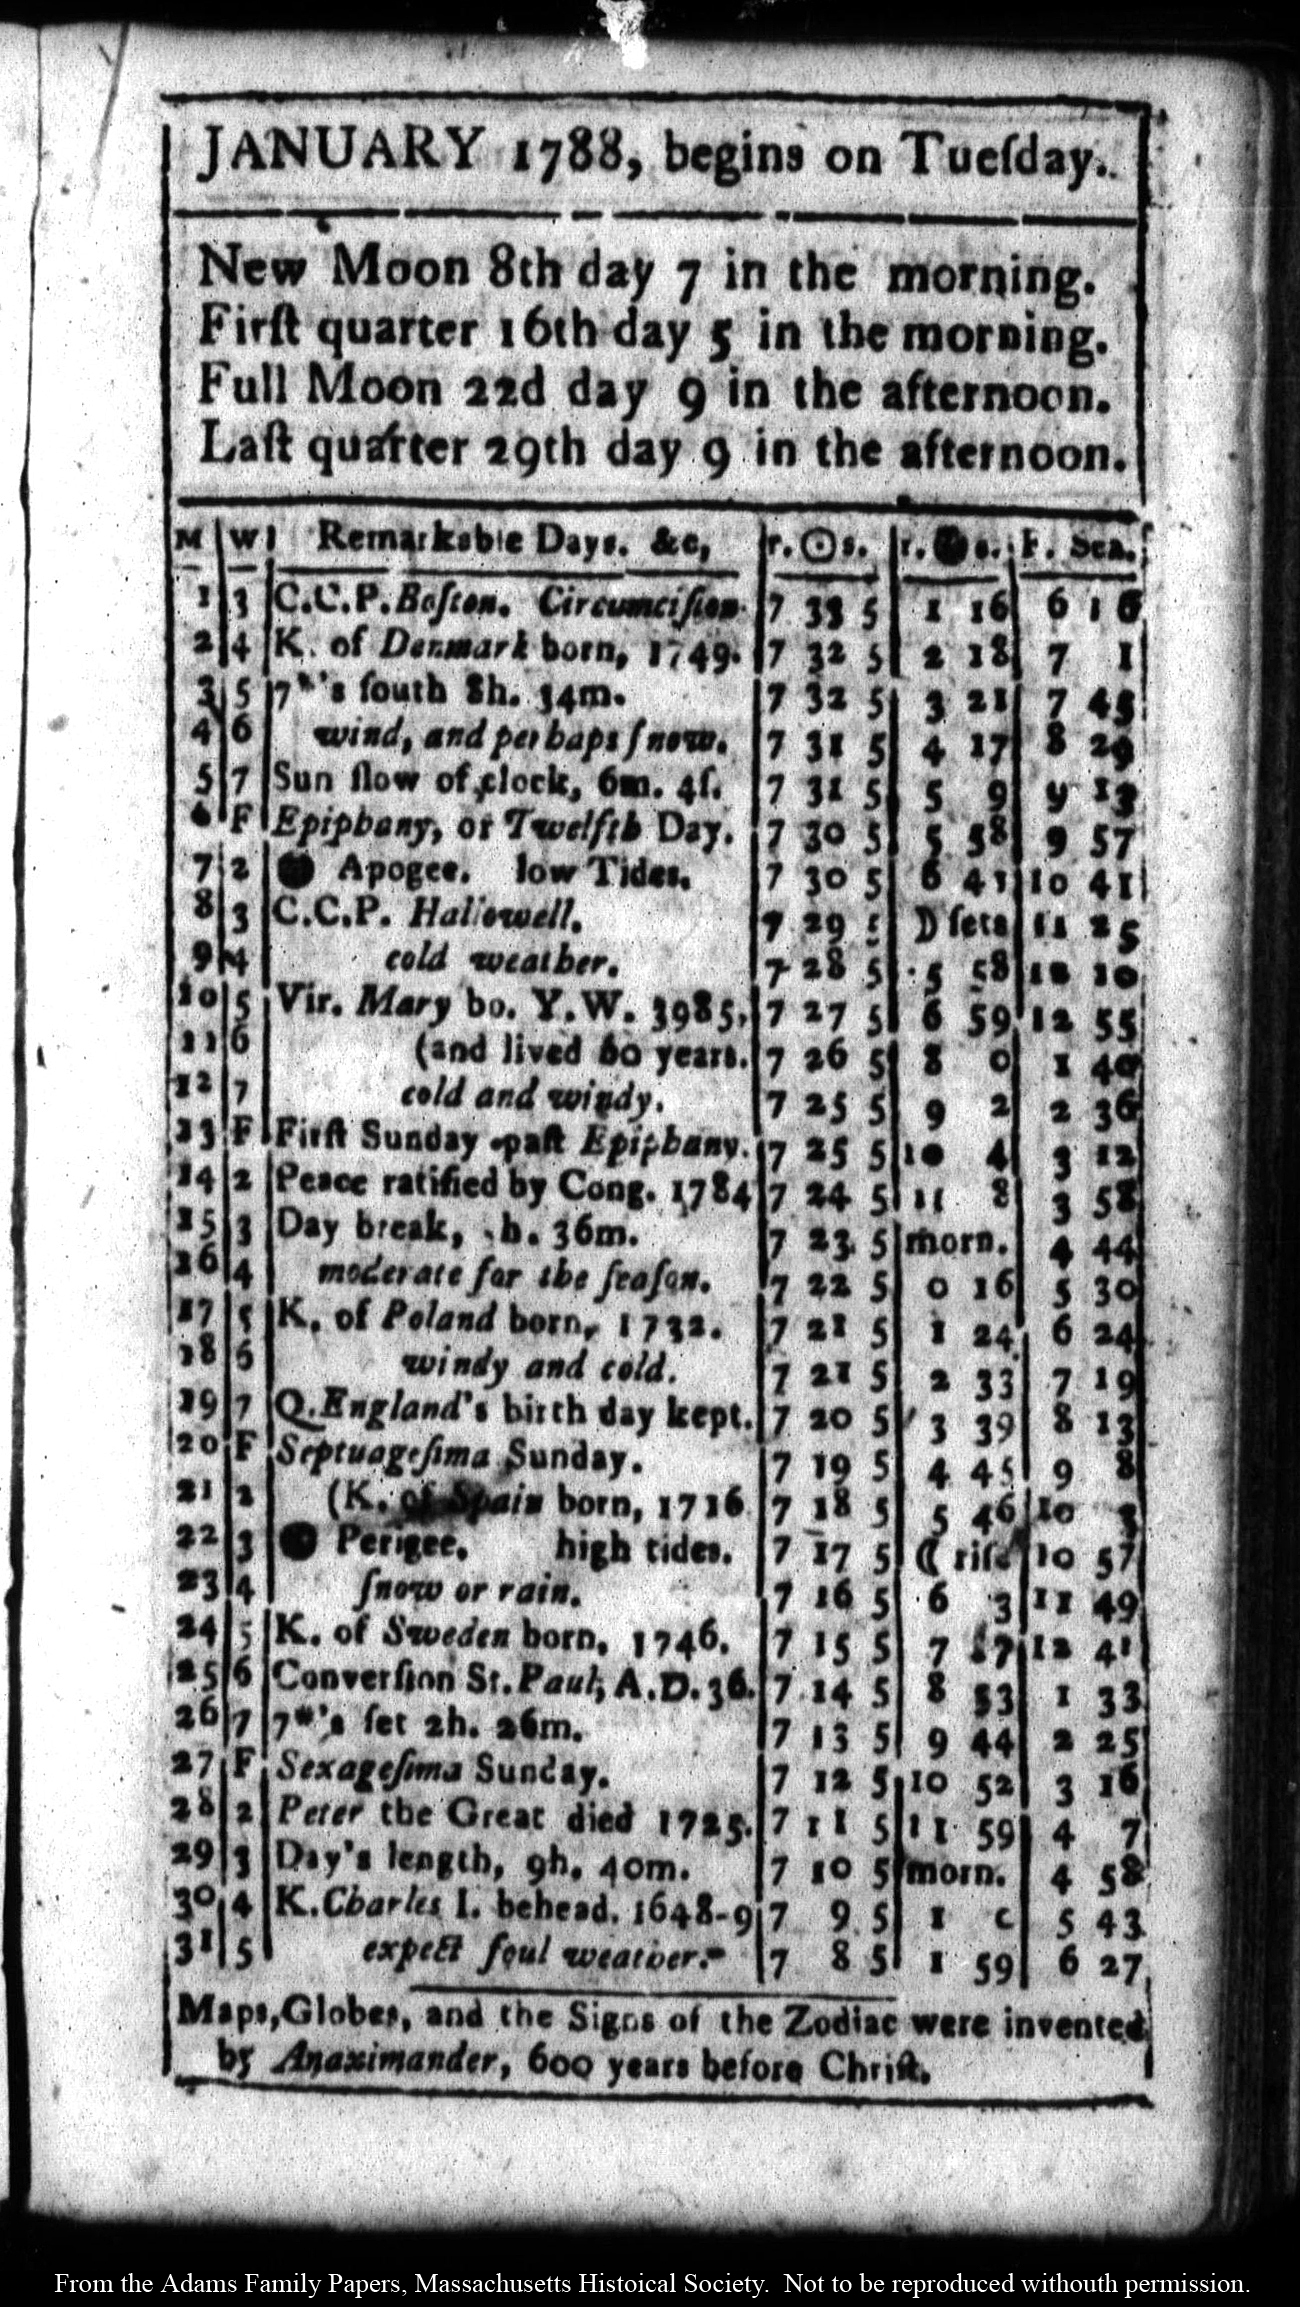 JANUARY 1788, begins on Tueſday.
New Moon 8th day 7 in the morning.
Firſt quarter 16th day 5 in the morning.
Full Moon 22d day 9 in the afternoon.
Laſt quarter 29th day 9 in the afternoon.
M W Remarkable Days. &c, r. ☉ s. r. s. F. Sea.
1 3 C.C.P. Boſton. Circumciſion. 7 33 5 1 16 6 16
2 4 K. of Denmark born, 1749. 7 32 5 2 18 7 1
3 5 7*'s ſouth 8h. 34m. 7 32 5 3 21 7 45
4 6 wind, and perhaps ſnow. 7 31 5 4 17 8 29
5 7 Sun ſlow of clock, 6m. 4ſ. 7 31 5 5 9 9 13
6 F Epiphany, or Twelfth Day. 7 30 5 5 58 9 57
7 2 Apogee. low Tides. 7 30 5 6 41 10 41
8 3 C.C.P. Hallowell. 7 29 5 ☽ ſets 11 25
9 4 cold weather. 7 28 5 5 58 10
10 5 Vir. Mary bo. Y.W. 3985, 7 27 5 6 59 12 55
11 6 (and lived 60 years. 7 26 5 8 0 1 40
12 7 cold and windy. 7 25 5 9 2 2 36
13 F Firſt Sunday paſt Epiphany. 7 25 5 10 4 3 12
14 2 Peace ratified by Cong. 1784 7 24 5 11 8 3 58
15 3 Day break, h. 36m. 7 23 5 morn. 4 44
16 4 moderate for the ſeaſon. 7 22 5 0 16 5 30
17 5 K. of Poland born, 1732. 7 21 5 1 24 6 24
18 6 windy and cold. 7 21 5 2 33 7 19
19 7 Q. England's birth day kept. 7 20 5 3 39 8 13
20 F Septuageſima Sunday. 7 19 5 4 45 9 8
21 2 (K. of Spain born, 1716 7 18 5 5 46 10 3
22 3 Perigee. high tides. 7 17 5 ☾ riſe 10 57
23 4 ſnow or rain. 7 16 5 6 3 11 49
24 5 K. of Sweden born, 1746. 7 15 5 7 12 41
25 6 Converſion St. Paul, A.D. 36. 7 14 5 8 33 1 33
26 7 7*'s ſet 2h. 26m. 7 13 5 9 44 2 25
27 F Sexageſima Sunday. 7 12 5 10 52 3 16
28 2 Peter the Great died 1725. 7 11 5 11 59 4 7
29 3 Day's length, 9h. 40m. 7 10 5 morn. 4 58
30 4 K. Charles I. behead. 1648-9 7 9 5 1 5 43
31 5 expect foul weather. 7 8 5 1 59 6 27
Maps, Globes, and the Signs of the Zodiac were invented
by Anaximander, 600 years before Chriſt.
From the Adams Family Papers, Massachusetts Histoical Society. Not to be reproduced withouth permission.